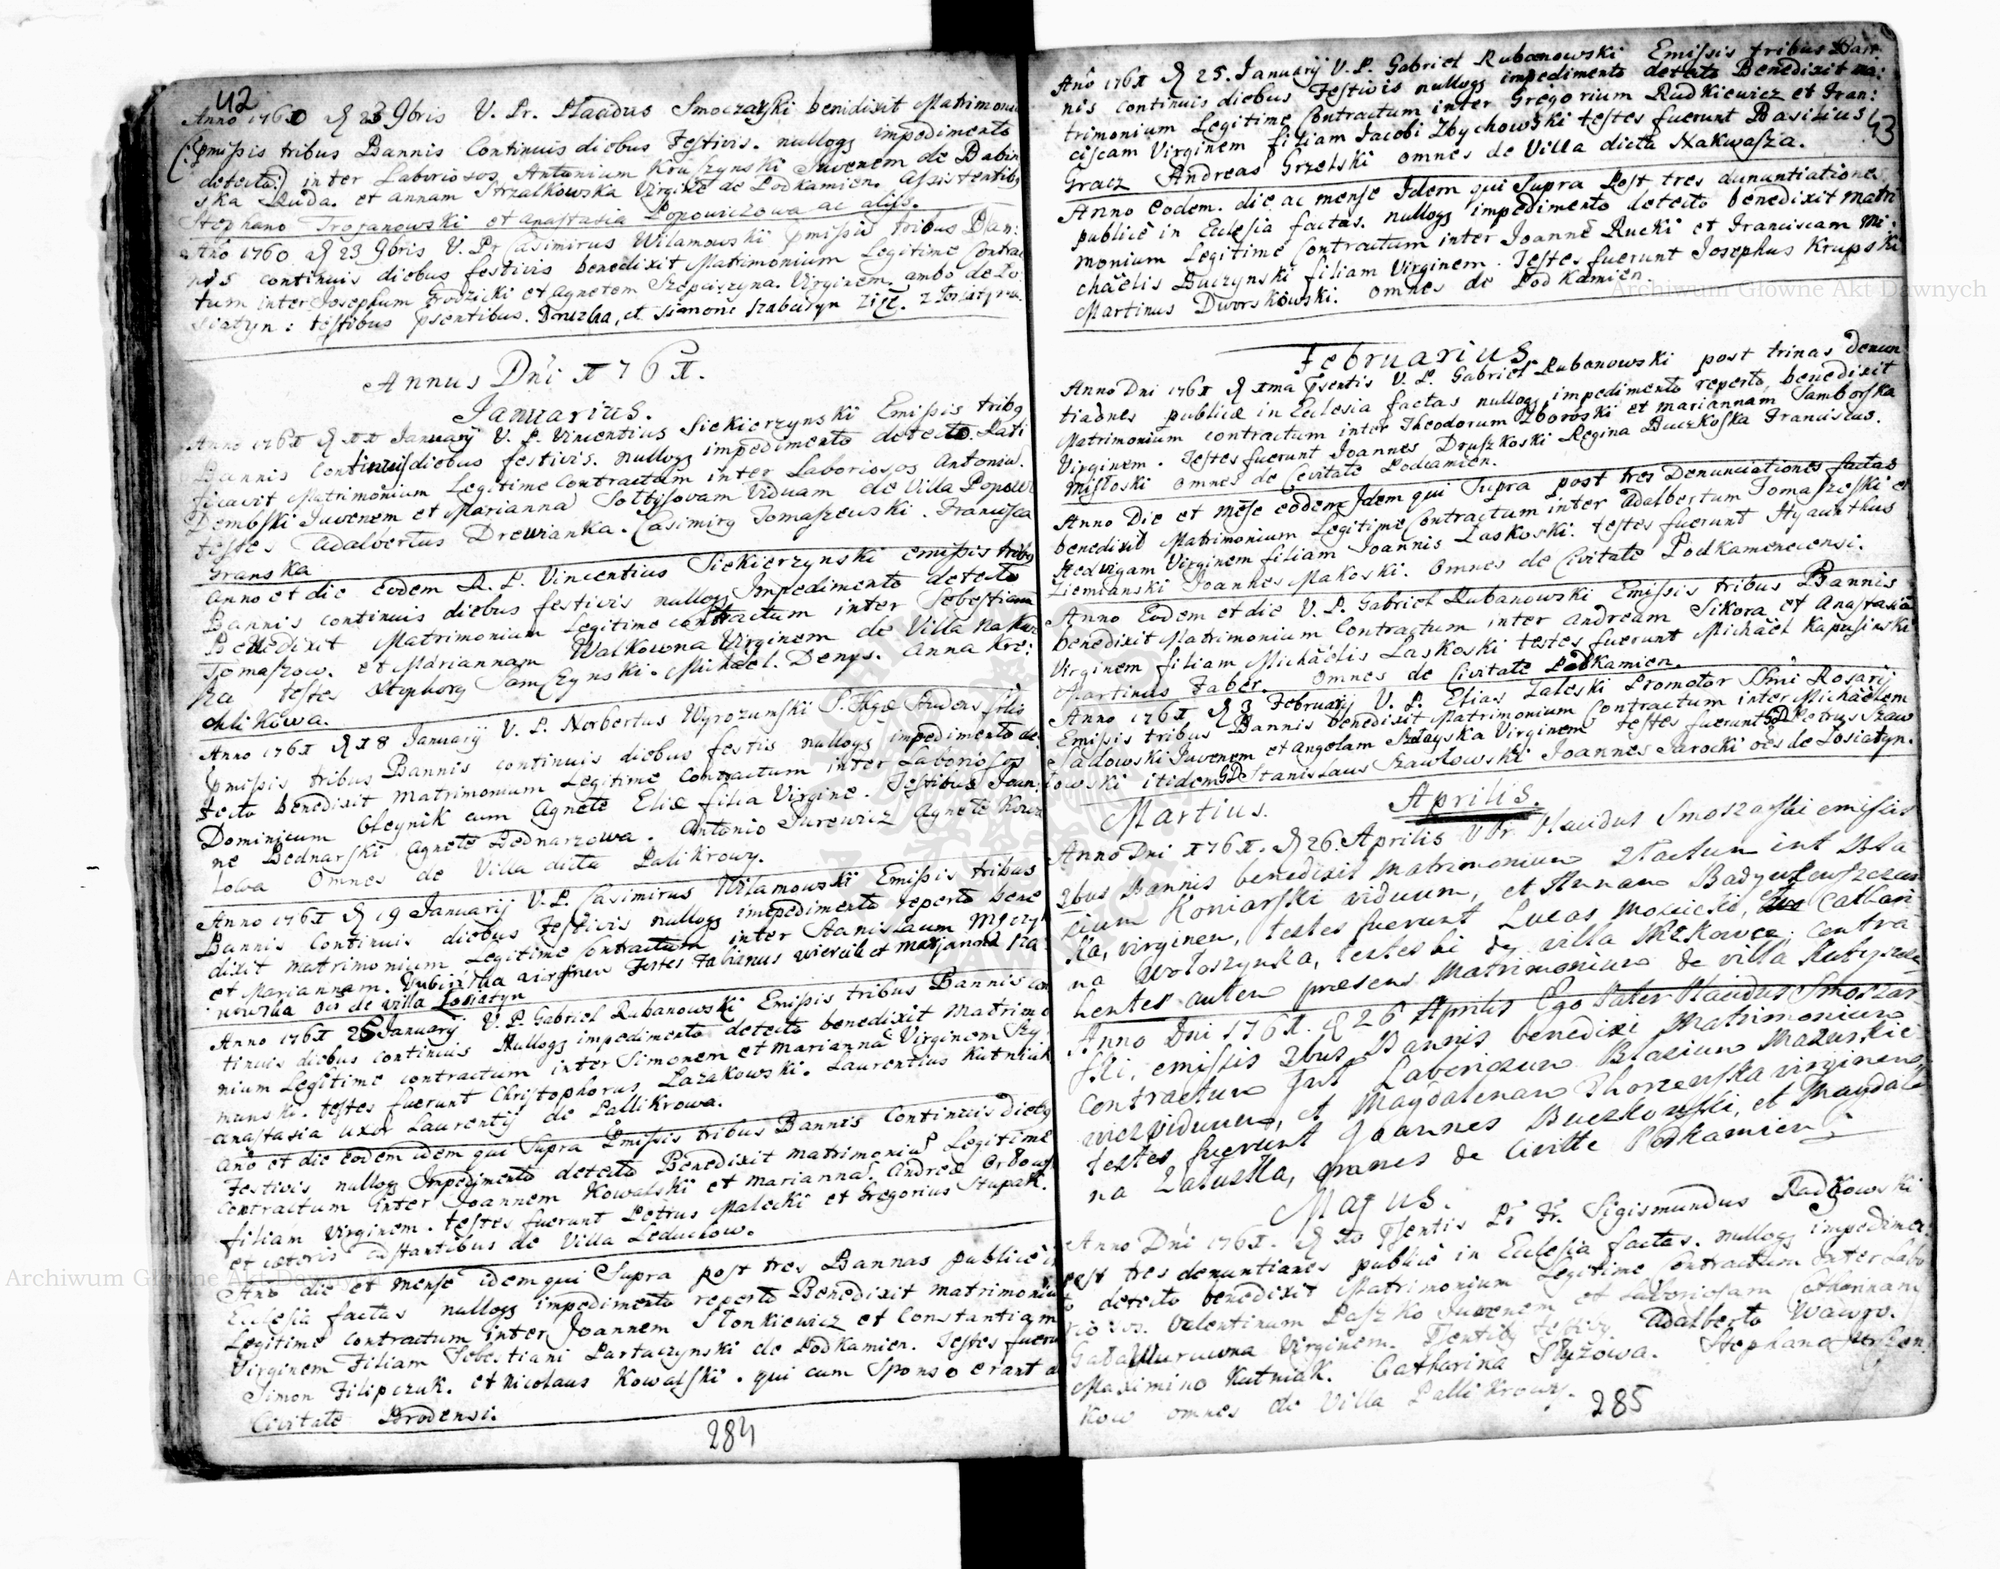 42
Anno 1760 d 23 9bris V. Pr. Placidus Smoczarski benidixit Matrimoniu
(pmissis tribus Bannis Continuis diebus Festivis. nullog impedimento
detecto) inter Laboriosos Antonium Kruszynski Iuvenem de Babin
ska Ruda. et annam Strzalkowska Virginē de Podkamien. Assistentibg
Stephano Troianowski et anastasia Popowiczowa ac alys.
Año 1760 d 23 9bris V. Pr Casimirus Wilamowski pmissis tribus Ban:
nis continuis diebus festivis benedixit Matrimonium Legitime Contrac
tum inter Josephum Grodzicki et Agnetem Szepciszyna. Virginem. ambo de Lo
siatyn: testibus psentibus. Druzba, et Simone Szaburyn
Annus Dn̄i 1761.
Januarius.
Anno 1761 d 11 January V. P. Vincentius Siekierzynski Emissis tribg
Bannis Continuis diebus festivis. nullog impedimento detecto. Rati
ficavit Matrimonium Legitime Contractum inter Laboriosos Antoniu.
Dembski Iuvenem et Marianna Soltysovam Viduam de Villa Popow
testes Adalbertus Drewianka. Casimirg Tomaszewski. Francisca
Granska
Anno et die Eodem A. P. Vincentius Siekierzynski emissis tribg
Bannis continuis diebus festivis nullog Impedimento detecto
Benedixit Matrimonium Legitime contractum inter Sebestianu
Tomaszow. et Mariannam Walkowna Virginem de Villa Nakwa
sza testes Michael. Denys. Anna Kre:
chlikowa.
Anno 1761 d 18 January V. P. Norbertus Wyrozumski
pmissis tribus Bannis continuis diebus festis nullog impedimento de
tecto benedixit Matrimonium Legitime Contractum inter Laboriosos
Dominicum Oleynik cum Agnete Eliæ filia Virgine. Testibus Joan
ne Bednarski Agnete Bednarzowa. Antonio Jurewicz Agnete Kowa
lowa Omnes de Villa dicta Palikrowy.
Anno 1761 d 19 January V. P. Casimirus Wilamowski Emissis tribus
Bannis Continuis diebus Festivis nullog impedimento reperto bene
dixit matrimonium Legitime Contractum inter Stanislaum
et Mariannam. virginem Testes Fabianus et marianna
de villa Losiatyn
Anno 1761 25 January V. P. Gabriel Rubanowski Emissis tribus Bannis con
tinuis diebus continuis Nullog impedimento detecto benedixit Matrimo
nium Legitime contractum inter Simonem et Marianna Virginem Szy
manski. testes fuerunt Christophorus Lazakowski. Laurentius Kutniak
anastasia uxor Laurentij de Pallikrowa.
Año et die eodem idem qui Supra Emissis tribus Bannis Continuis diebg
Festivis nullog Impedimento detecto Benedixit matrimoniu Legitime
Contractum inter Joannem Kowalski et marianna. Andreæ
filiam Virginem. testes fuerunt Petrus Malecki et Gregorius Stupak.
et cæteris astantibus de Villa Leduchow.
Año die et mense idem qui Supra post tres Bannas publice in
Eclesia factas nullog impedimento reperto Benedixit matrimoniu
Legitime contractum inter Joannem Slonkiewicz et Constantiam
Virginem Filiam Sebestiani Partaczynski de Podkamien. Testes fueru
Simon Filipczuk. et Nicolaus Kowalski. qui cum Sponso erant de
Civitate Brodensi.
284
Año 1761 d 25. January V. P. Gabriel Rubanowski Emissis tribus Ban
nis continuis diebus Festivis nullog impedimento detecto Benedixit ma:
trimonium Legitime Contractum inter Gregorium Rudkiewicz et Fran:
ciscam Virginem filiam Jacobi Zbychowski testes fuerunt Basilius
43
Gracz Andreas Grzelski omnes de Villa dicta Nakwasza.
Anno eodem. die ac mense Idem qui Supra Post tres dununtiationes
publicè in Eclesia factas. nullog impedimento detecto benedixit matri
monium Legitime Contractum inter Joannē Rucki et Franciscam Mi:
chäelis Buczynski filiam Virginem. Testes fuerunt Josephus Krupski
Martinus Dworskowski. omnes de Podkamien
Februarius
Anno Dni 1761 d 1ma Psentis V. P. Gabriel Rubanowski post trinas denun
tiaones publicæ in Eclesia factas nullog impedimento reperto, benedixit
Matrimonium contractum inter Theodorum Zboroski et mariannam Samborska
Virginem. Testes fuerunt Joannes Druszkoski Regina Buczkoska Franciscus.
Misloski omnes de Civitate Podcamien.
Anno Die et mēse eodem Idem qui Supra post tres Denunciationes factas
benedixit Matrimonium Legitime Contractum inter Adalbertum Tomaszeski et
Hedvigam Virginem filiam Joannis Laskoski. testes fuerunt Hyacinthus
Ziemianski Joannes Makoski. omnes de Civitate Podkamenecensi.
Anno Eodem et die V. P. Gabriel Rubanowski Emissis tribus Bannis
benedixit Matrimonium Contractum inter Andream Sikora et Anastasia
Virginem filiam Michäelis Laskoski testes fuerunt Michäel Kapusinski
Martinus Faber. omnes de Civitate Podkamien.
Anno 1761 d 3 February V. P. Elias Zaleski Promotor Sm̄i Rosarij
Emissis tribus Bannis benedixit Matrimonium Contractum inter Michäelem
Sadowski Iuvenem et Angelam Virginem testes fuerunt Petrus Szaw
lowski itidem Stanislaus Szawlowski Joannes Jarocki oēs de Losiatyn.
Martius. Aprilis.
Anno Dni 1761. d 26. Aprilis V Pr. Placidus Smoszarski emissis
2bus Bannis benedixit matrimonium 2tractum int Bla
sium Koniarski viduum, et Annam
ka, virginem, testes fuerunt Lucas Mosiicki, Cathari
na Wołoszynska, testes hi de villa contra
hentes autem præsens Matrimonium de villa
Anno Dni 1761. d 26 Aprilis Ego Pater Placidus Smoszar
ski, emissis 2bus Bannis benedixi Matrimonium
contractum Int Laboriosum Blasium Mazurkie
wicz viduum, et Magdalenam Thorzewska virginem,
testes fuerunt Joannes Buczkowski, et Magdale
na Zaluska, omnes de Civitte Podkamien
Majus.
Anno Dn̄i 1761. d 10 Psentis Pr Fr. Sigismundus Radzkowski
post tres denuntianes publicè in Eclesia factas. nullog impedimen
to detecto benedixit Matrimonium Legitime Contractum inter Labo
riosos. Valentinum Paszko Iuvenem et Laboriosam Catharinam
Virginem. Psentibg testibg. Adalberto Wawro.
Maximino Kutniak. Catharina Slyzowa. Stephano
kow omnes de Villa Pallikrowy.
285
Archiwum Główne Akt Dawnych
Archiwum Główne Akt Dawnych